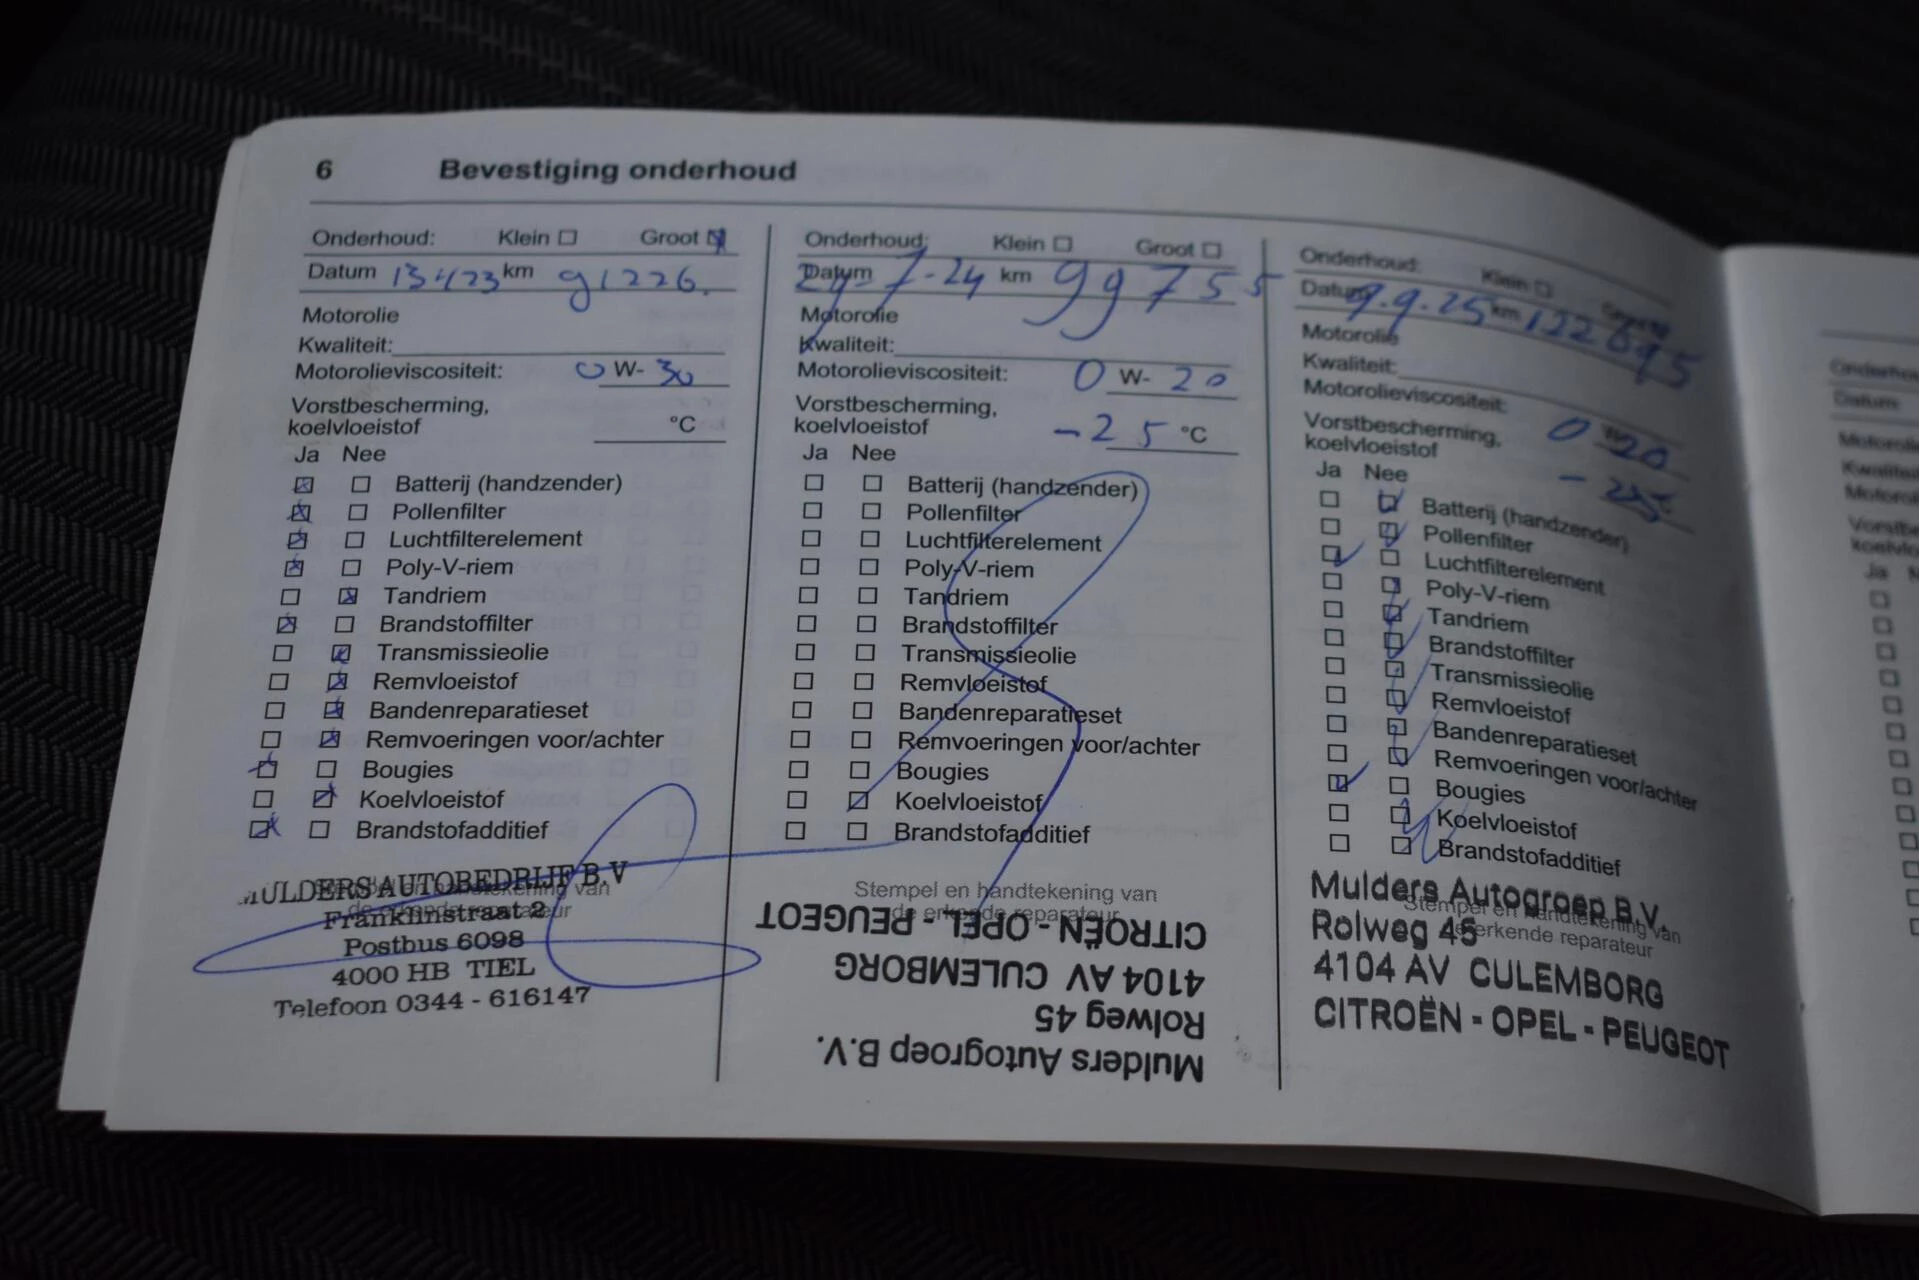 6 Bevestiging onderhoud
Onderhoud: Klein Groot
Datum km 91226.
Motorolie
Kwaliteit:
Motorolieviscositeit: 0 W- 30
Vorstbescherming,
koelvloeistof °C
Ja Nee
Batterij (handzender)
Pollenfilter
Luchtfilterelement
Poly-V-riem
Tandriem
Brandstoffilter
Transmissieolie
Remvloeistof
Bandenreparatieset
Remvoeringen voor/achter
Bougies
Koelvloeistof
Brandstofadditief
Stempel en handtekening van
de erkende reparateur
MULDERS AUTOBEDRIJF B.V
Franklinstraat 2
Postbus 6098
4000 HB TIEL
Telefoon 0344 - 616147
Onderhoud: Klein Groot
Datum 7-24 km 99755
Motorolie
Kwaliteit:
Motorolieviscositeit: 0 W- 20
Vorstbescherming,
koelvloeistof -25 °C
Ja Nee
Batterij (handzender)
Pollenfilter
Luchtfilterelement
Poly-V-riem
Tandriem
Brandstoffilter
Transmissieolie
Remvloeistof
Bandenreparatieset
Remvoeringen voor/achter
Bougies
Koelvloeistof
Brandstofadditief
Stempel en handtekening van
de erkende reparateur
Mulders Autogroep B.V.
Rolweg 45
4104 AV CULEMBORG
CITROËN - OPEL - PEUGEOT
Onderhoud: Klein Groot
Datum 9.9.25 km 122695
Motorolie
Kwaliteit:
Motorolieviscositeit: 0 W- 20
Vorstbescherming,
koelvloeistof
Ja Nee
Batterij (handzender)
Pollenfilter
Luchtfilterelement
Poly-V-riem
Tandriem
Brandstoffilter
Transmissieolie
Remvloeistof
Bandenreparatieset
Remvoeringen voor/achter
Bougies
Koelvloeistof
Brandstofadditief
Stempel en handtekening van
de erkende reparateur
Mulders Autogroep B.V.
Rolweg 45
4104 AV CULEMBORG
CITROËN - OPEL - PEUGEOT
Datum
Ja